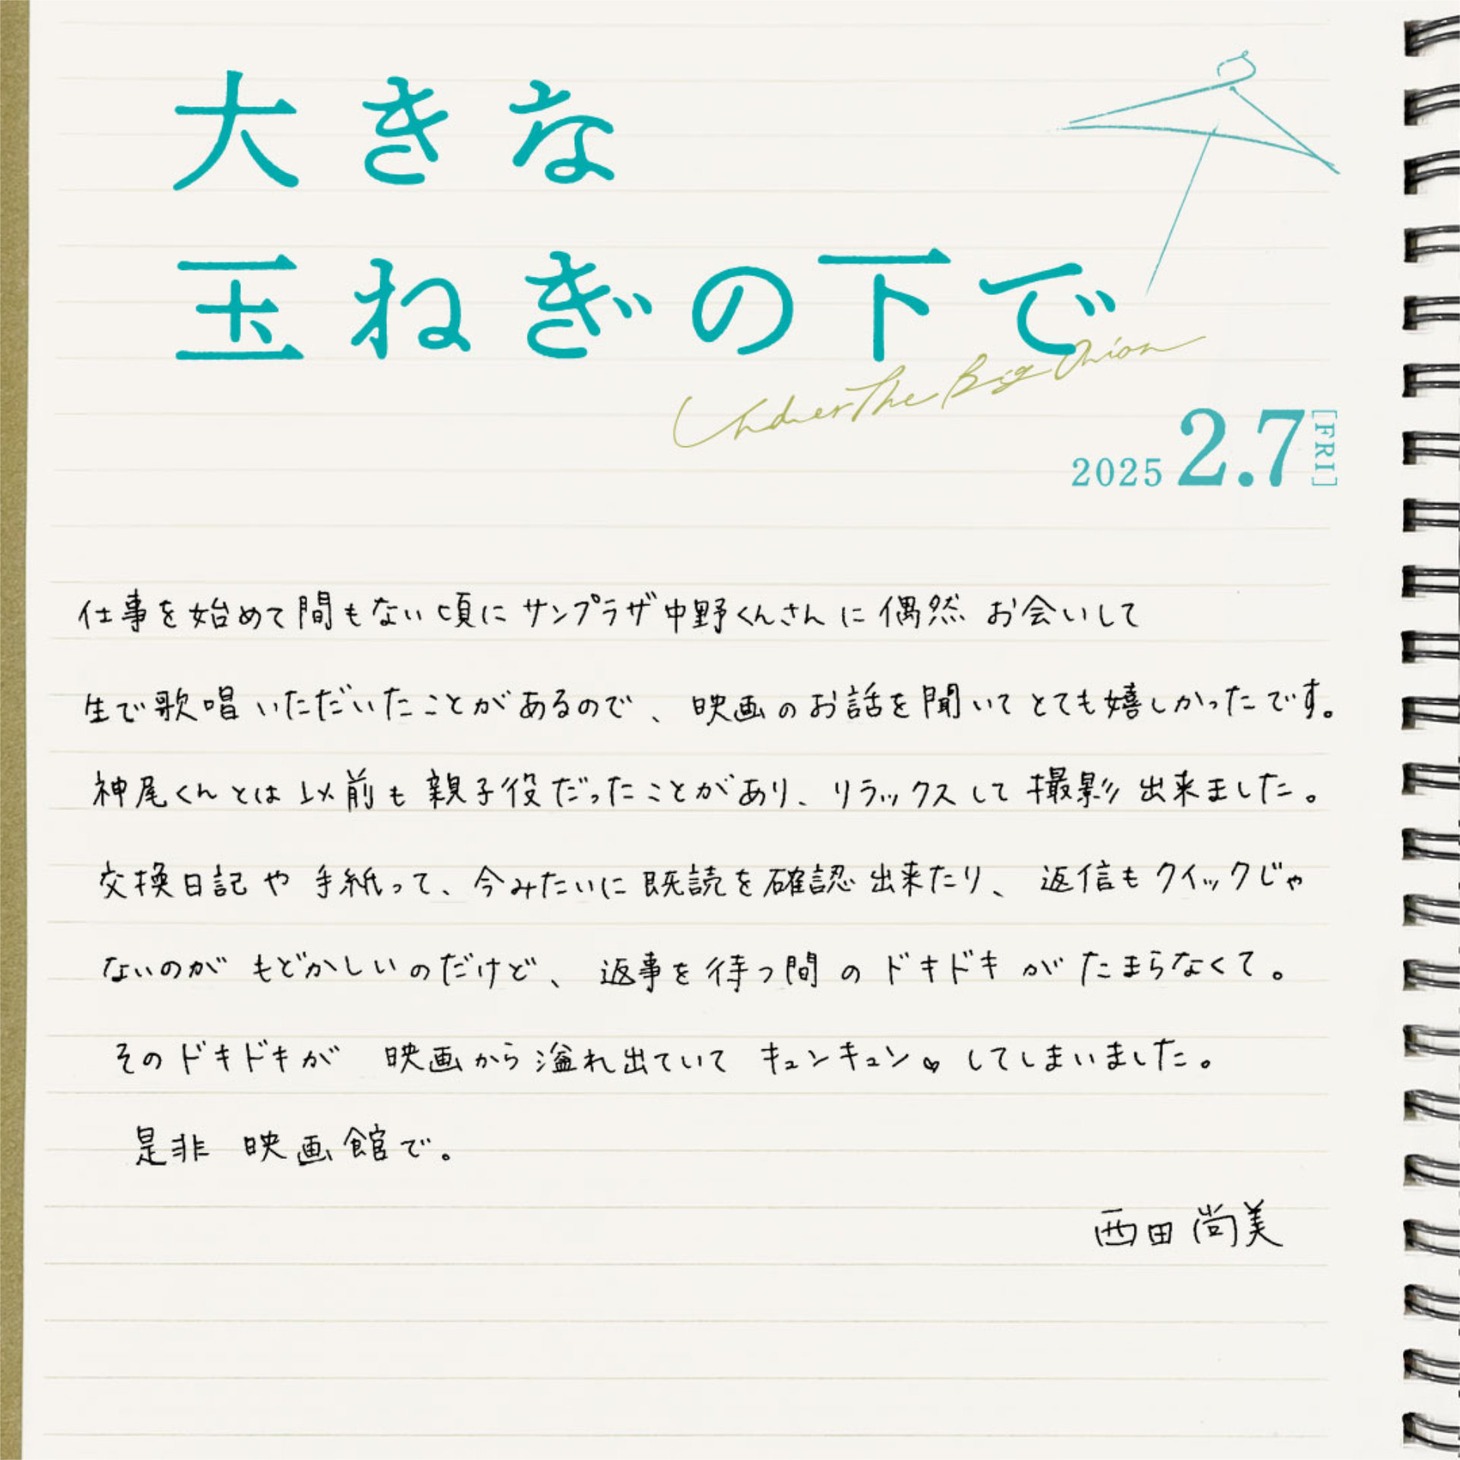 大きな
玉ねぎの下で
Under The Big Onion
2025 2.7 [FRI]
仕事を始めて間もない頃に サンプラザ中野くんさんに 偶然 お会いして
生で歌唱いただいたことがあるので、映画のお話を聞いて とても嬉しかったです。
神尾くんとは 以前も 親子役だったことがあり、リラックスして 撮影 出来ました。
交換日記や 手紙って、今みたいに 既読を確認 出来たり、返信もクイックじゃ
ないのが もどかしいのだけど、返事を待つ間の ドキドキがたまらなくて。
そのドキドキが 映画から溢れ出ていて キュンキュン♡してしまいました。
是非 映画館で。
西田尚美